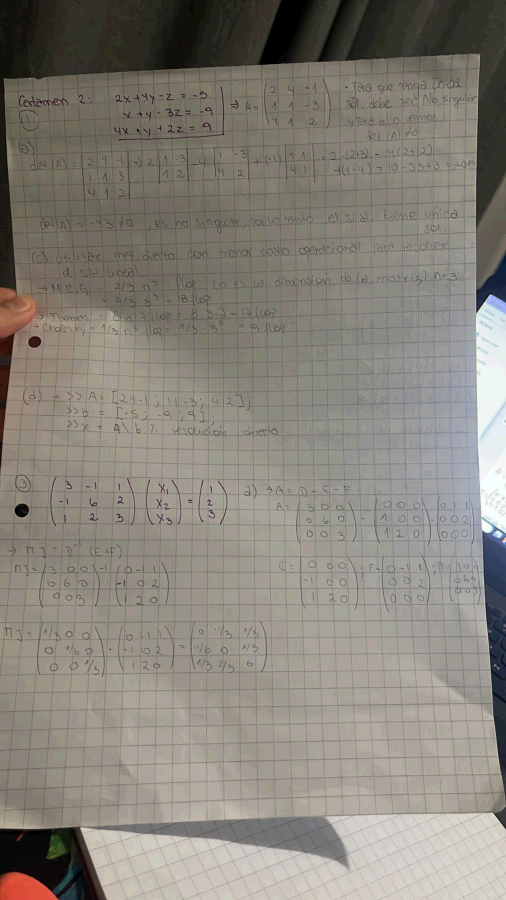 Certamen 2: 2x+4y-z = -5
x + y - 3z = -9
4x + y + 2z = 9
⇒ A = (2 4 -1
1 1 -3
4 1 2)
· Para que tenga única
sol. debe ser No singular
det(A) ≠ 0
①
(a)
det(A) = |2 4 -1
1 1 -3
4 1 2|
= 10 - 53 + 3 =
det(A) = -43 ≠ 0, es no singular, por lo tanto el sist. tiene única
sol.
(c) utilizar met. directo con menor costo operacional para resolver
el sist. lineal
→ M.E.G = 2/3 n³ flop (n es la dimensión de la matriz) n=3
= 2/3 · 3³ = 18 flop
→ Thomas = 8n-7 flop = 8·3-7 = 17 flop
→ Cholesky = 1/3 n³ flop = 1/3 · 3³ = 9 flop
(d) → >> A = [2 4 -1 ; 1 1 -3 ; 4 1 2];
>> b = [-5 ; -9 ; 9];
>> x = A\b % resolución directa
③
(3 -1 1
-1 6 2
1 2 3)
(x₁
x₂
x₃)
= (1
2
3)
d) → A = D - E - F
A = (3 0 0
0 6 0
0 0 3)
- (0 0 0
1 0 0
1 2 0)
- (0 1 1
0 0 2
0 0 0)
→ MJ = D⁻¹ (E+F)
MJ = (3 0 0
0 6 0
0 0 3)⁻¹
· (0 -1 1
-1 0 2
1 2 0)
E = (0 0 0
-1 0 0
1 2 0)
; F = (0 -1 1
0 0 2
0 0 0)
; D = (3 0 0
0 6 0
0 0 3)
MJ = (1/3 0 0
0 1/6 0
0 0 1/3)
· (0 -1 1
-1 0 2
1 2 0)
= (0 -1/3 1/3
-1/6 0 1/3
1/3 2/3 0)